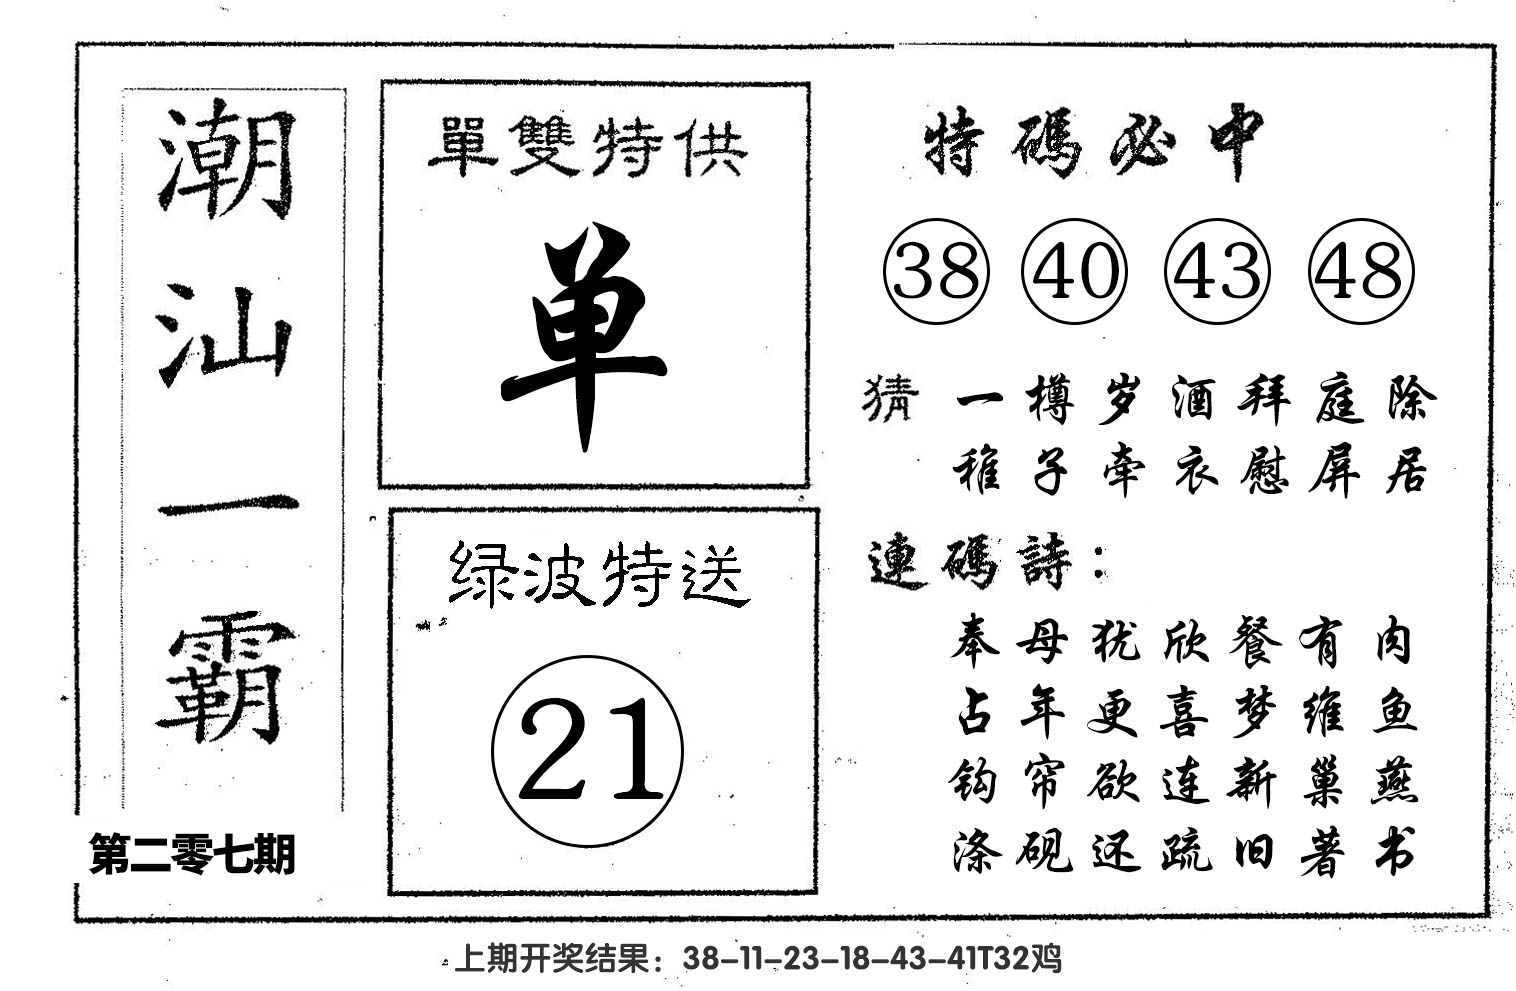 潮汕一霸
第二零七期
單雙特供
单
绿波特送
21
特碼必中
38 40 43 48
猜 一樽岁酒拜庭除
稚子牵衣慰屏居
連碼詩：
奉母犹欣餐有肉
占年更喜梦维鱼
钩帘欲连新巢燕
涤砚还疏旧著书
上期开奖结果：38-11-23-18-43-41T32鸡